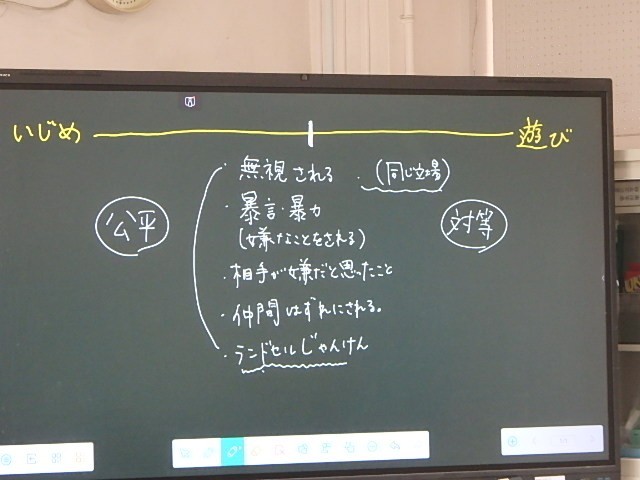 いじめ 遊び
・無視される ・(同じ立場)
・暴言・暴力
(嫌なことをされる)
公平 対等
・相手が嫌だと思ったこと
・仲間はずれにされる。
・ランドセルじゃんけん